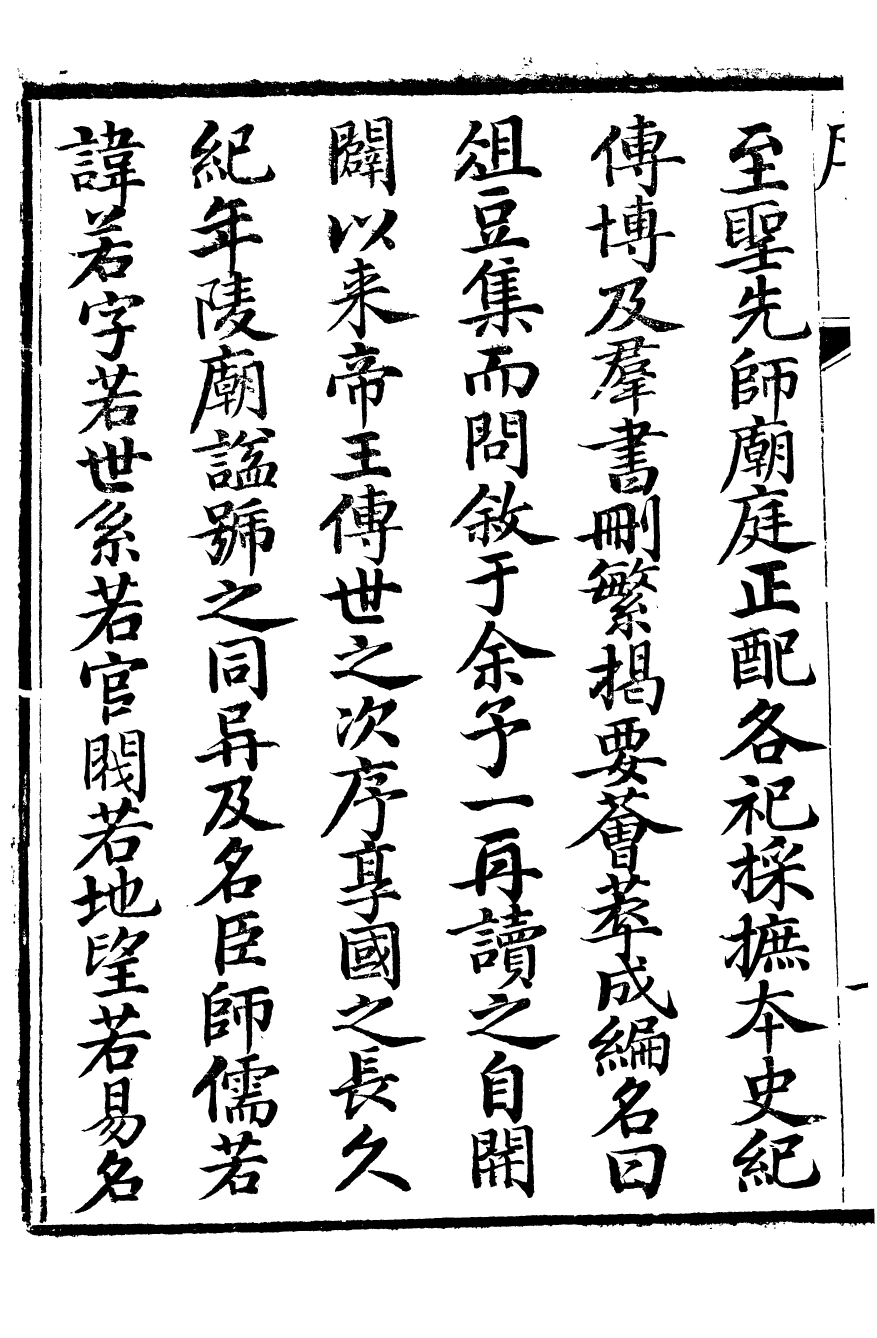 至聖先師廟庭正配各祀採摭本史紀
傳博及羣書刪繁揭要薈萃成編名曰
俎豆集而問敘于余予一再讀之自開
闢以来帝王傳世之次序享國之長久
紀年陵廟諡號之同异及名臣師儒若
諱若字若世系若官閥若地望若易名